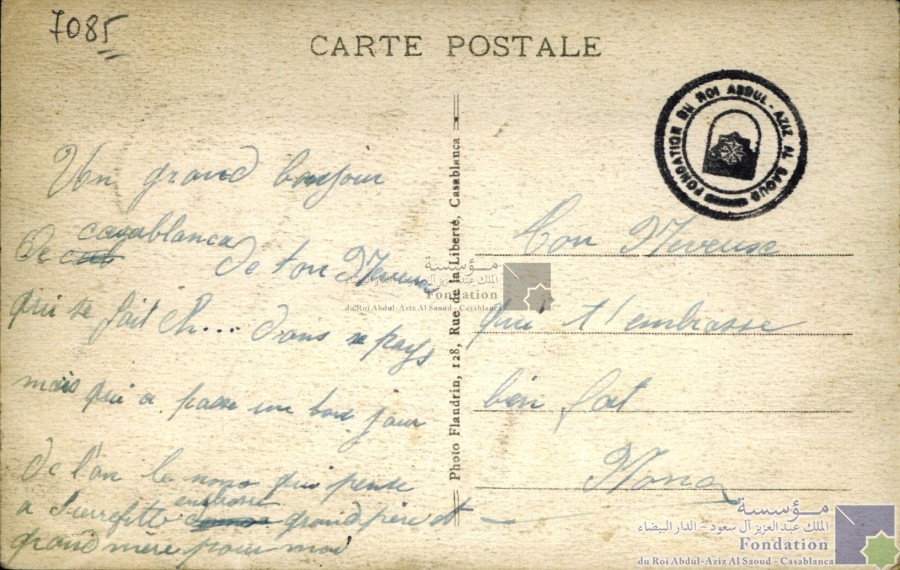 7085
CARTE POSTALE
FONDATION DU ROI ABDUL-AZIZ AL SAOUD
Un grand bonjour
casablanca
De de ton
qui se fait Ch... dans se pays
mais qui a passe un bon jour
de l'an le nono qui pense
embrasse
a Pierrefitte grand père et
grand mère pour moi
Photo Flandrin, 128, Rue de la Liberté, Casablanca
Ton
qui t'embrasse
bien fort
Nono
مؤسسة
الملك عبد العزيز آل سعود - الدار البيضاء
Fondation
du Roi Abdul-Aziz Al Saoud - Casablanca
مؤسسة
الملك عبد العزيز آل سعود - الدار البيضاء
Fondation
du Roi Abdul-Aziz Al Saoud - Casablanca